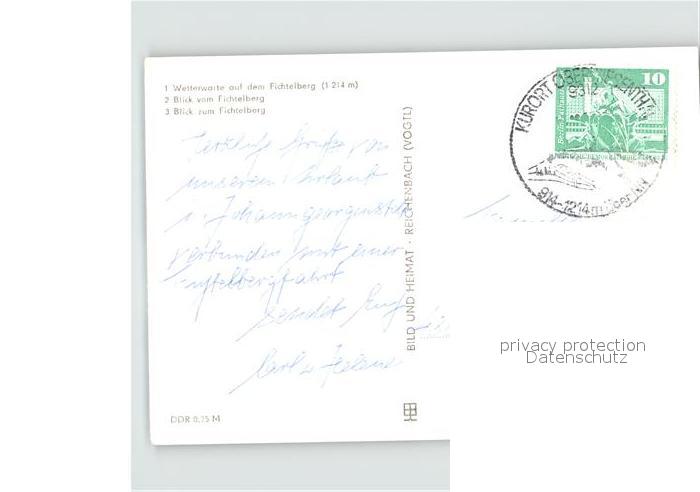 1 Wetterwarte auf dem Fichtelberg (1 214 m)
2 Blick vom Fichtelberg
3 Blick zum Fichtelberg
Herzliche Grüße von
unserem Urlaub
i. Johanngeorgenstadt
verbunden mit einer
Fichtelbergfahrt
sendet Euch
Carl u. Helene
DDR 0,25 M
BILD UND HEIMAT · REICHENBACH (VOGTL)
KURORT OBERWIESENTHAL
9312
914-1214 m über NN
10
privacy protection
Datenschutz